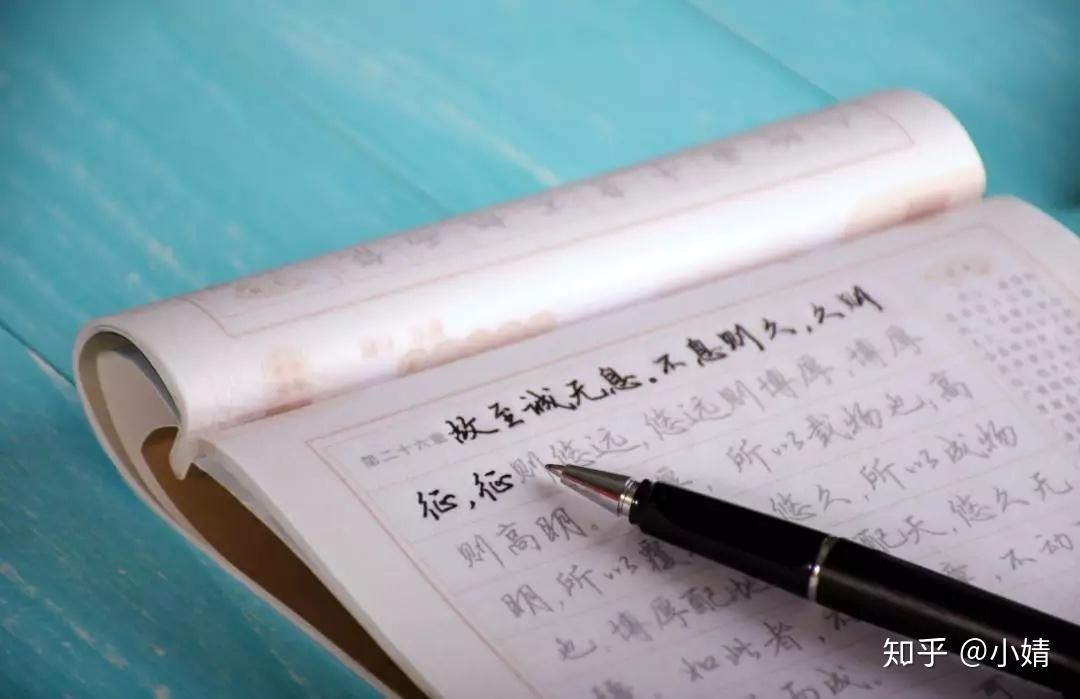 第二十六章 故至诚无息。不息则久，久则
征，征则悠远，悠远则博厚，博厚
则高明。 所以载物也；高
明，所以覆 悠久，所以成物
也。博厚配地 配天，悠久无
如此者， 不动
而成。
知乎 @小婧